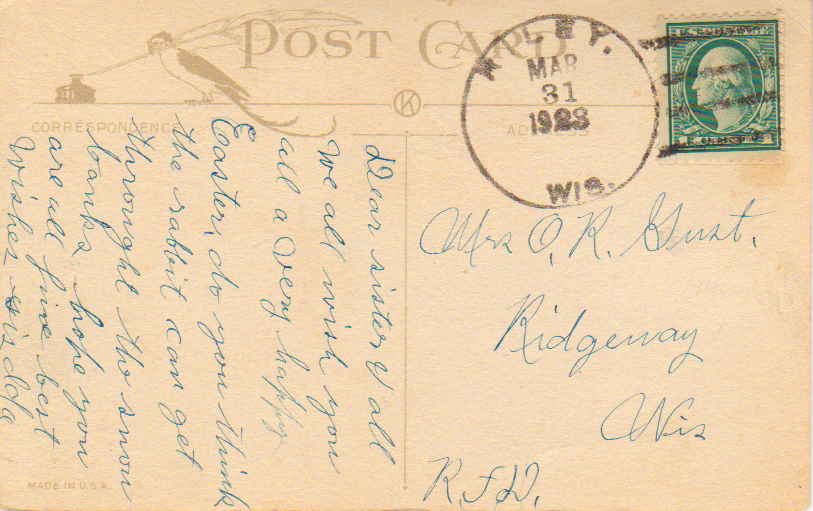 POST CARD
CORRESPONDENCE
MAR
31
1923
WIS.
Dear sister & all
we all wish you
all a very happy
Easter, do you think
the rabbit can get
throught the snow
banks, hope you
are all fine best
wishes sis Ida
Mrs O, R. Gust.
Ridgeway
Wis
R.F.D.
MADE IN U.S.A.